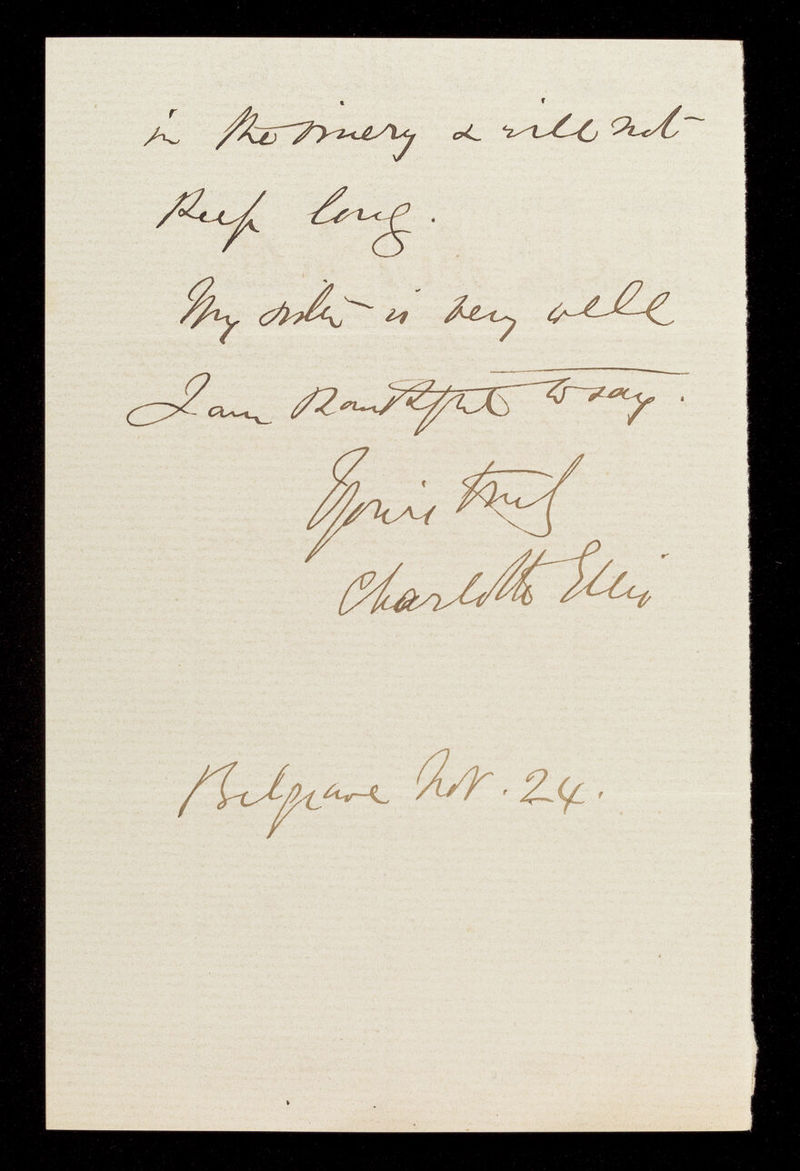 in the vinery & will not
keep long.
My sister is very well
I am thankful to say.
Yours truly
Charlotte Ellis
Belgrave Nov. 24.